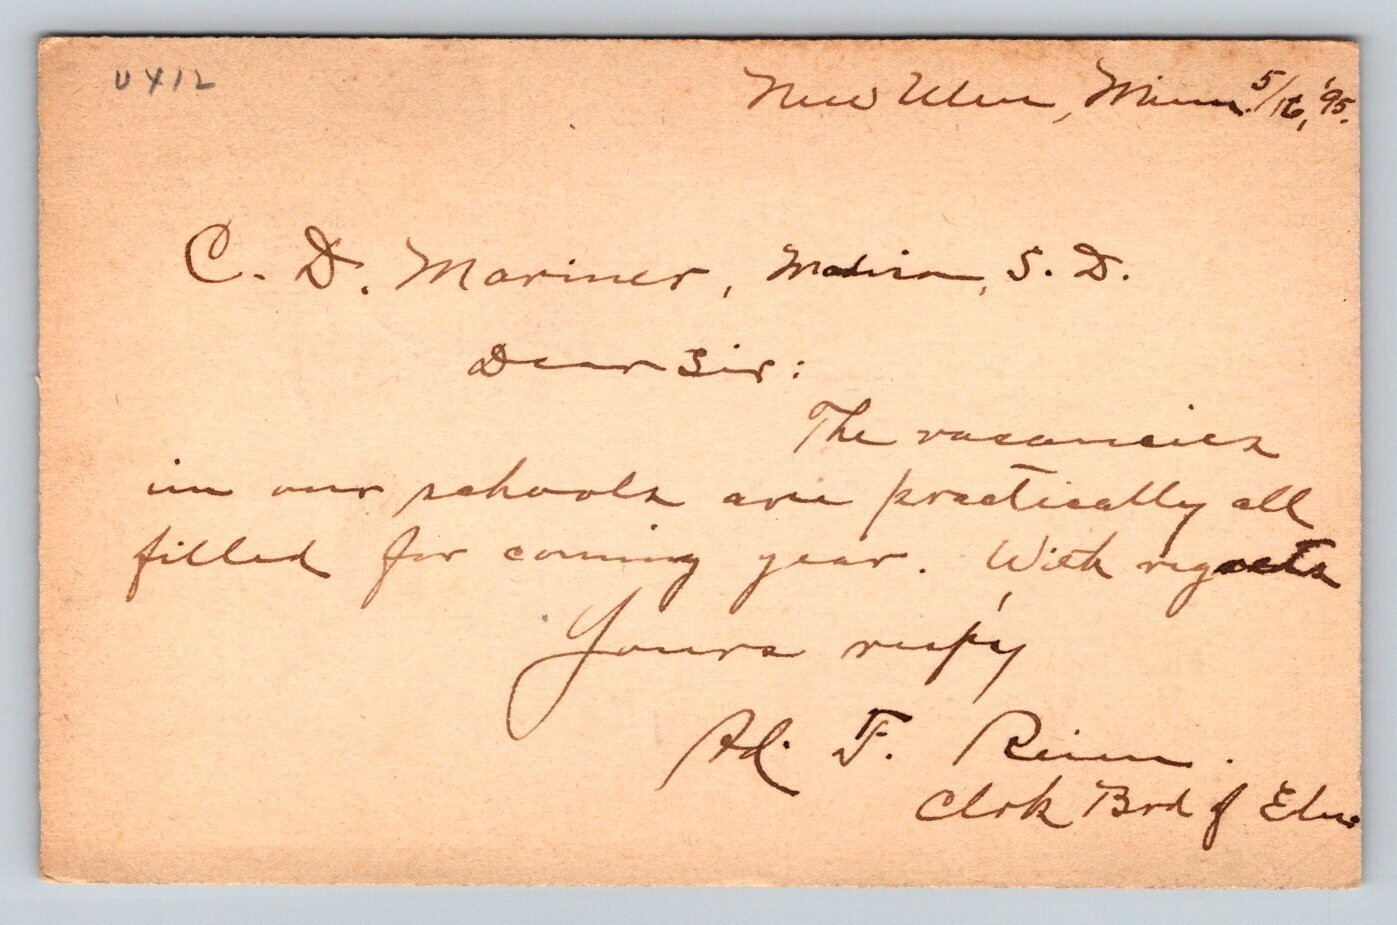 UX12
New Ulm, Minn. 5/16, '95.
C. D. Mariner, Madison, S. D.
Dear Sir:
The vacancies
in our schools are practically all
filled for coming year. With regrets
Yours resp'y
Ad. F.
Clrk Brd of Edu.